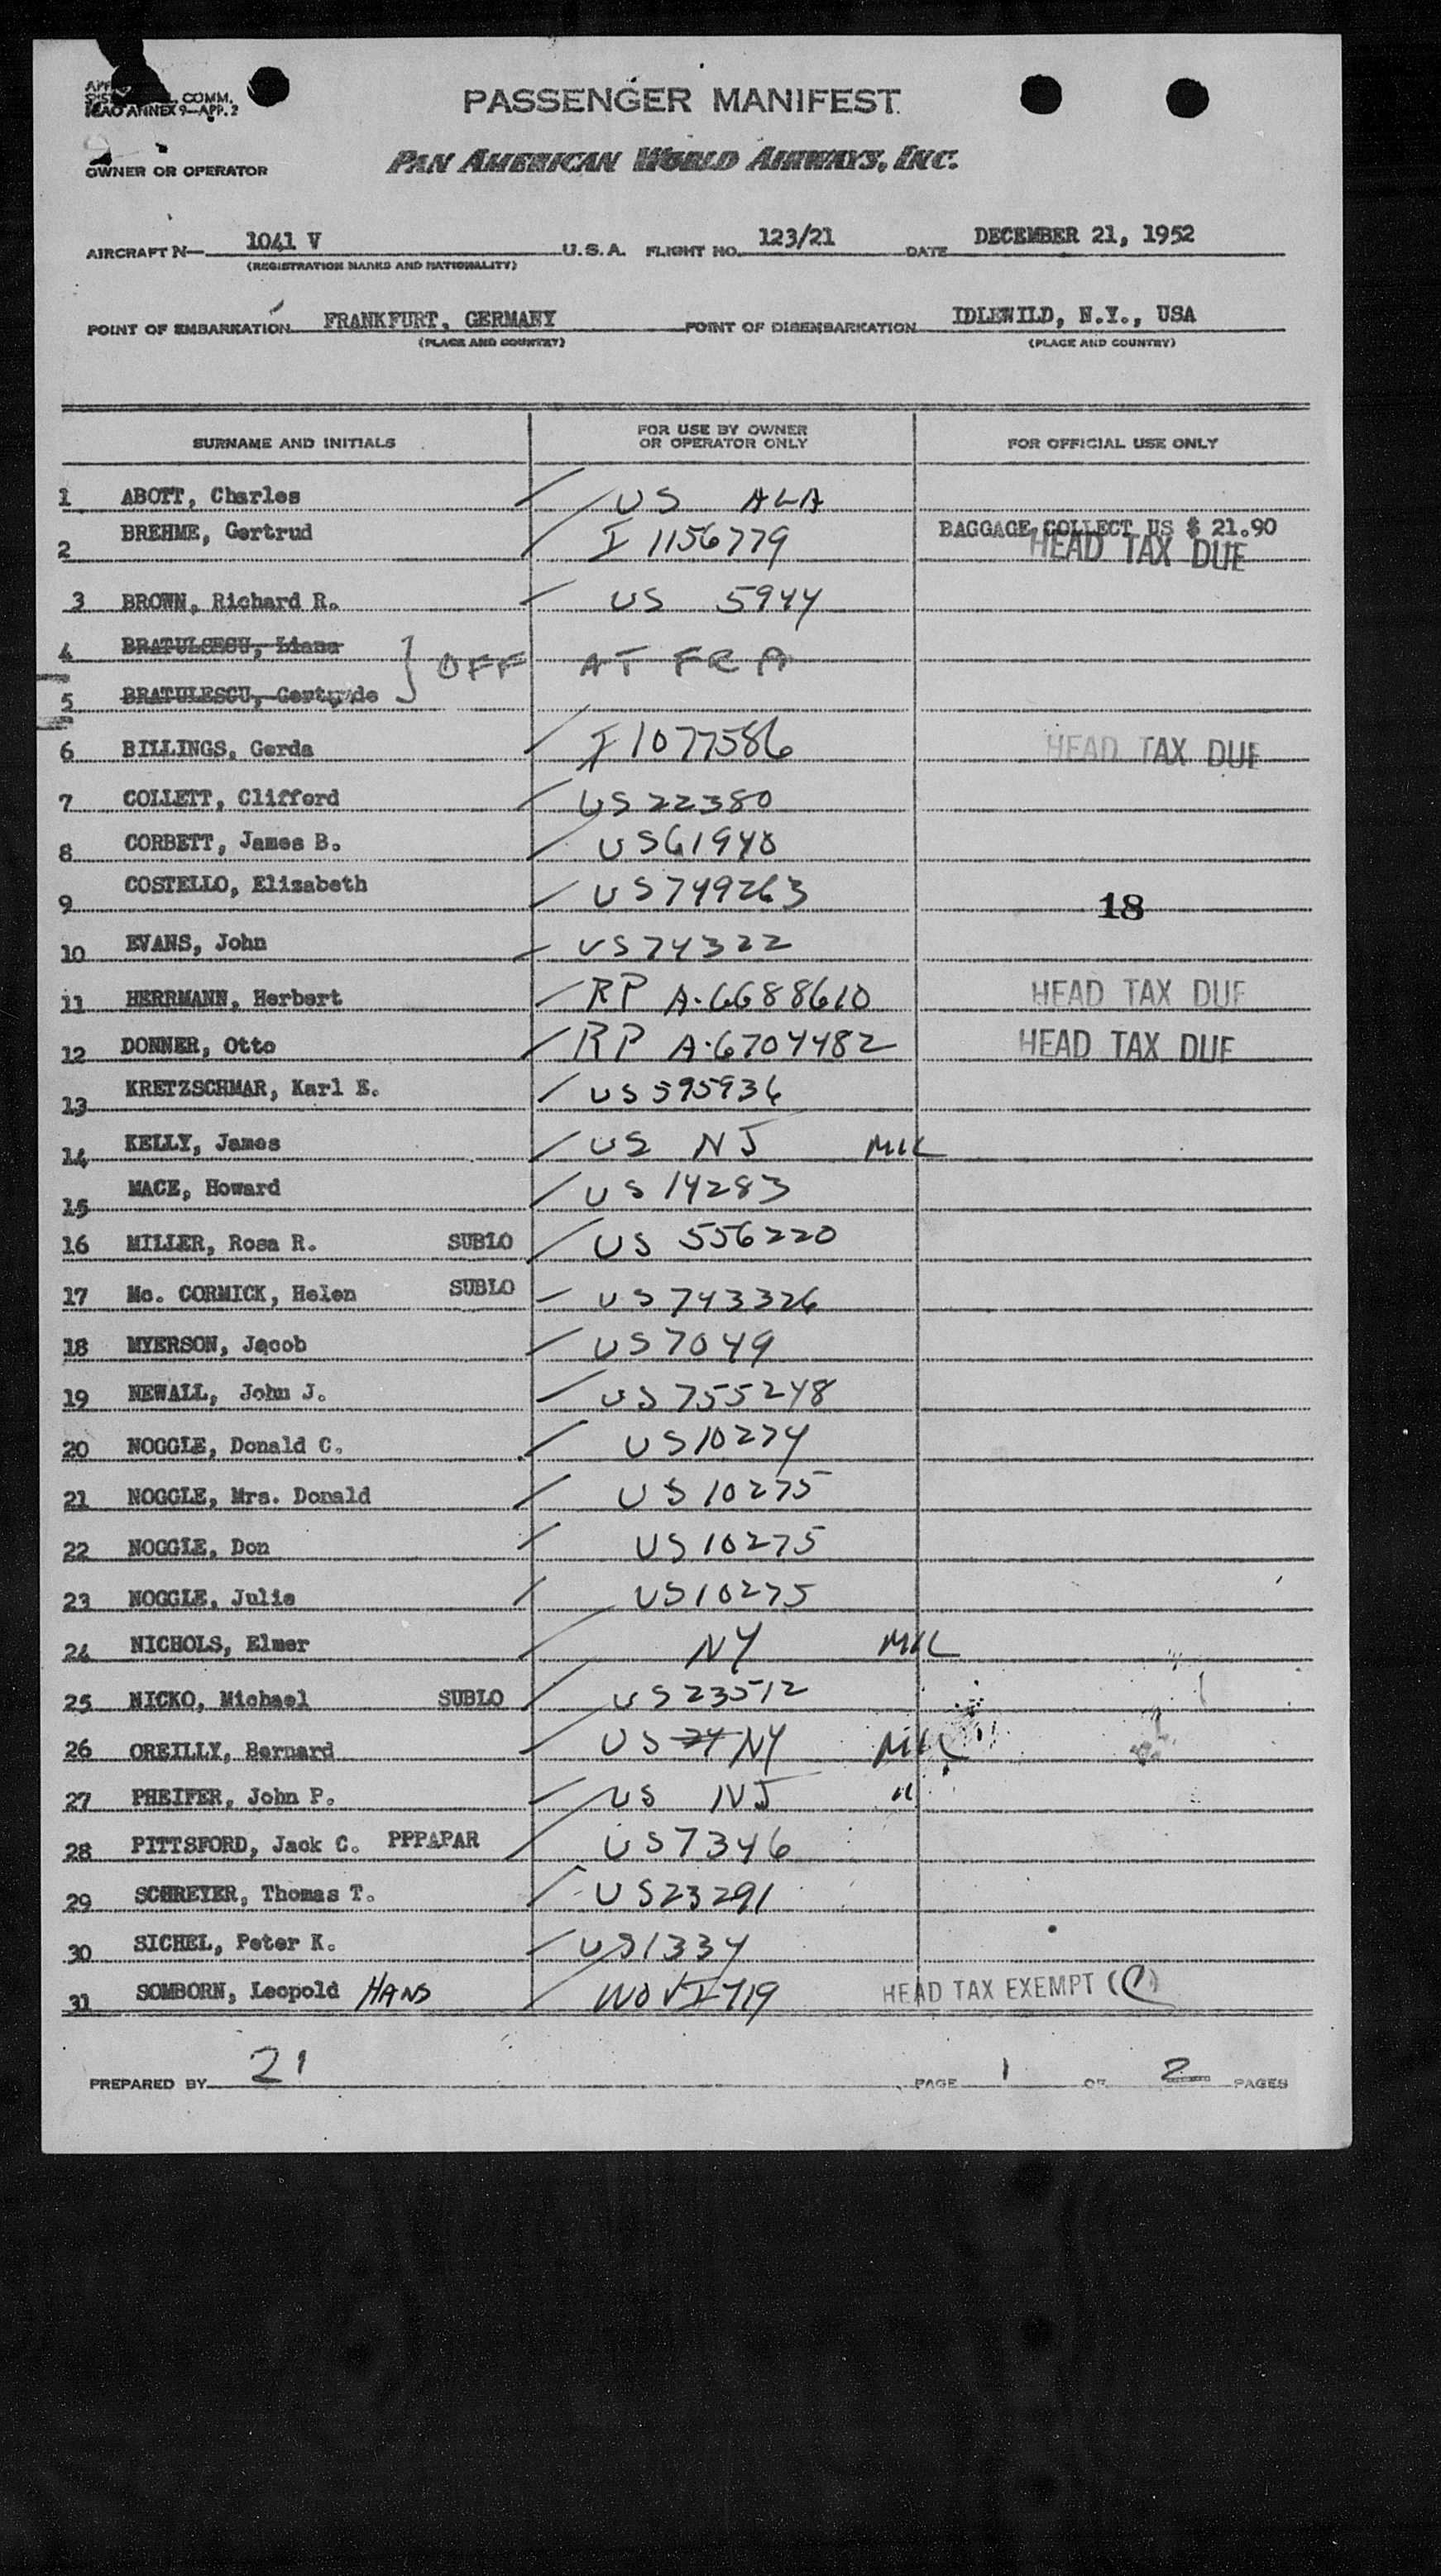 COMM.
ICAO ANNEX 9—APP. 2
PASSENGER MANIFEST
OWNER OR OPERATOR
PAN AMERICAN WORLD AIRWAYS, INC.
AIRCRAFT N— 1041 V U.S.A. FLIGHT NO. 123/21 DATE DECEMBER 21, 1952
(REGISTRATION MARKS AND NATIONALITY)
POINT OF EMBARKATION FRANKFURT, GERMANY POINT OF DISEMBARKATION IDLEWILD, N.Y., USA
(PLACE AND COUNTRY) (PLACE AND COUNTRY)
SURNAME AND INITIALS FOR USE BY OWNER OR OPERATOR ONLY FOR OFFICIAL USE ONLY
1 ABOTT, Charles US ALA
2 BREHME, Gertrud I 1156779 BAGGAGE COLLECT US $ 21.90
HEAD TAX DUE
3 BROWN, Richard R. US 5944
4 BRATULESCU, Liana
} OFF AT FRA
5 BRATULESCU, Gertrude
6 BILLINGS, Gerda I 1077586 HEAD TAX DUE
7 COLLETT, Clifford US 22380
8 CORBETT, James B. US 61940
9 COSTELLO, Elizabeth US 749263 18
10 EVANS, John US 74322
11 HERRMANN, Herbert RP A-6688610 HEAD TAX DUE
12 DONNER, Otto RP A-6704482 HEAD TAX DUE
13 KRETZSCHMAR, Karl E. US 595936
14 KELLY, James US NJ MIL
15 MACE, Howard US 14283
16 MILLER, Rosa R. SUBLO US 556220
17 Mc. CORMICK, Helen SUBLO US 743326
18 MYERSON, Jacob US 7049
19 NEWALL, John J. US 755248
20 NOGGLE, Donald C. US 10274
21 NOGGLE, Mrs. Donald US 10275
22 NOGGLE, Don US 10275
23 NOGGLE, Julie US 10275
24 NICHOLS, Elmer NY MIL
25 NICKO, Michael SUBLO US 23512
26 OREILLY, Bernard US NY MIL
27 PHEIFER, John P. US NJ "
28 PITTSFORD, Jack C. PPPAPAR US 7346
29 SCHREYER, Thomas T. US 23291
30 SICHEL, Peter K. US 1334
31 SOMBORN, Leopold HANS HEAD TAX EXEMPT
PREPARED BY 21 PAGE 1 OF 2 PAGES